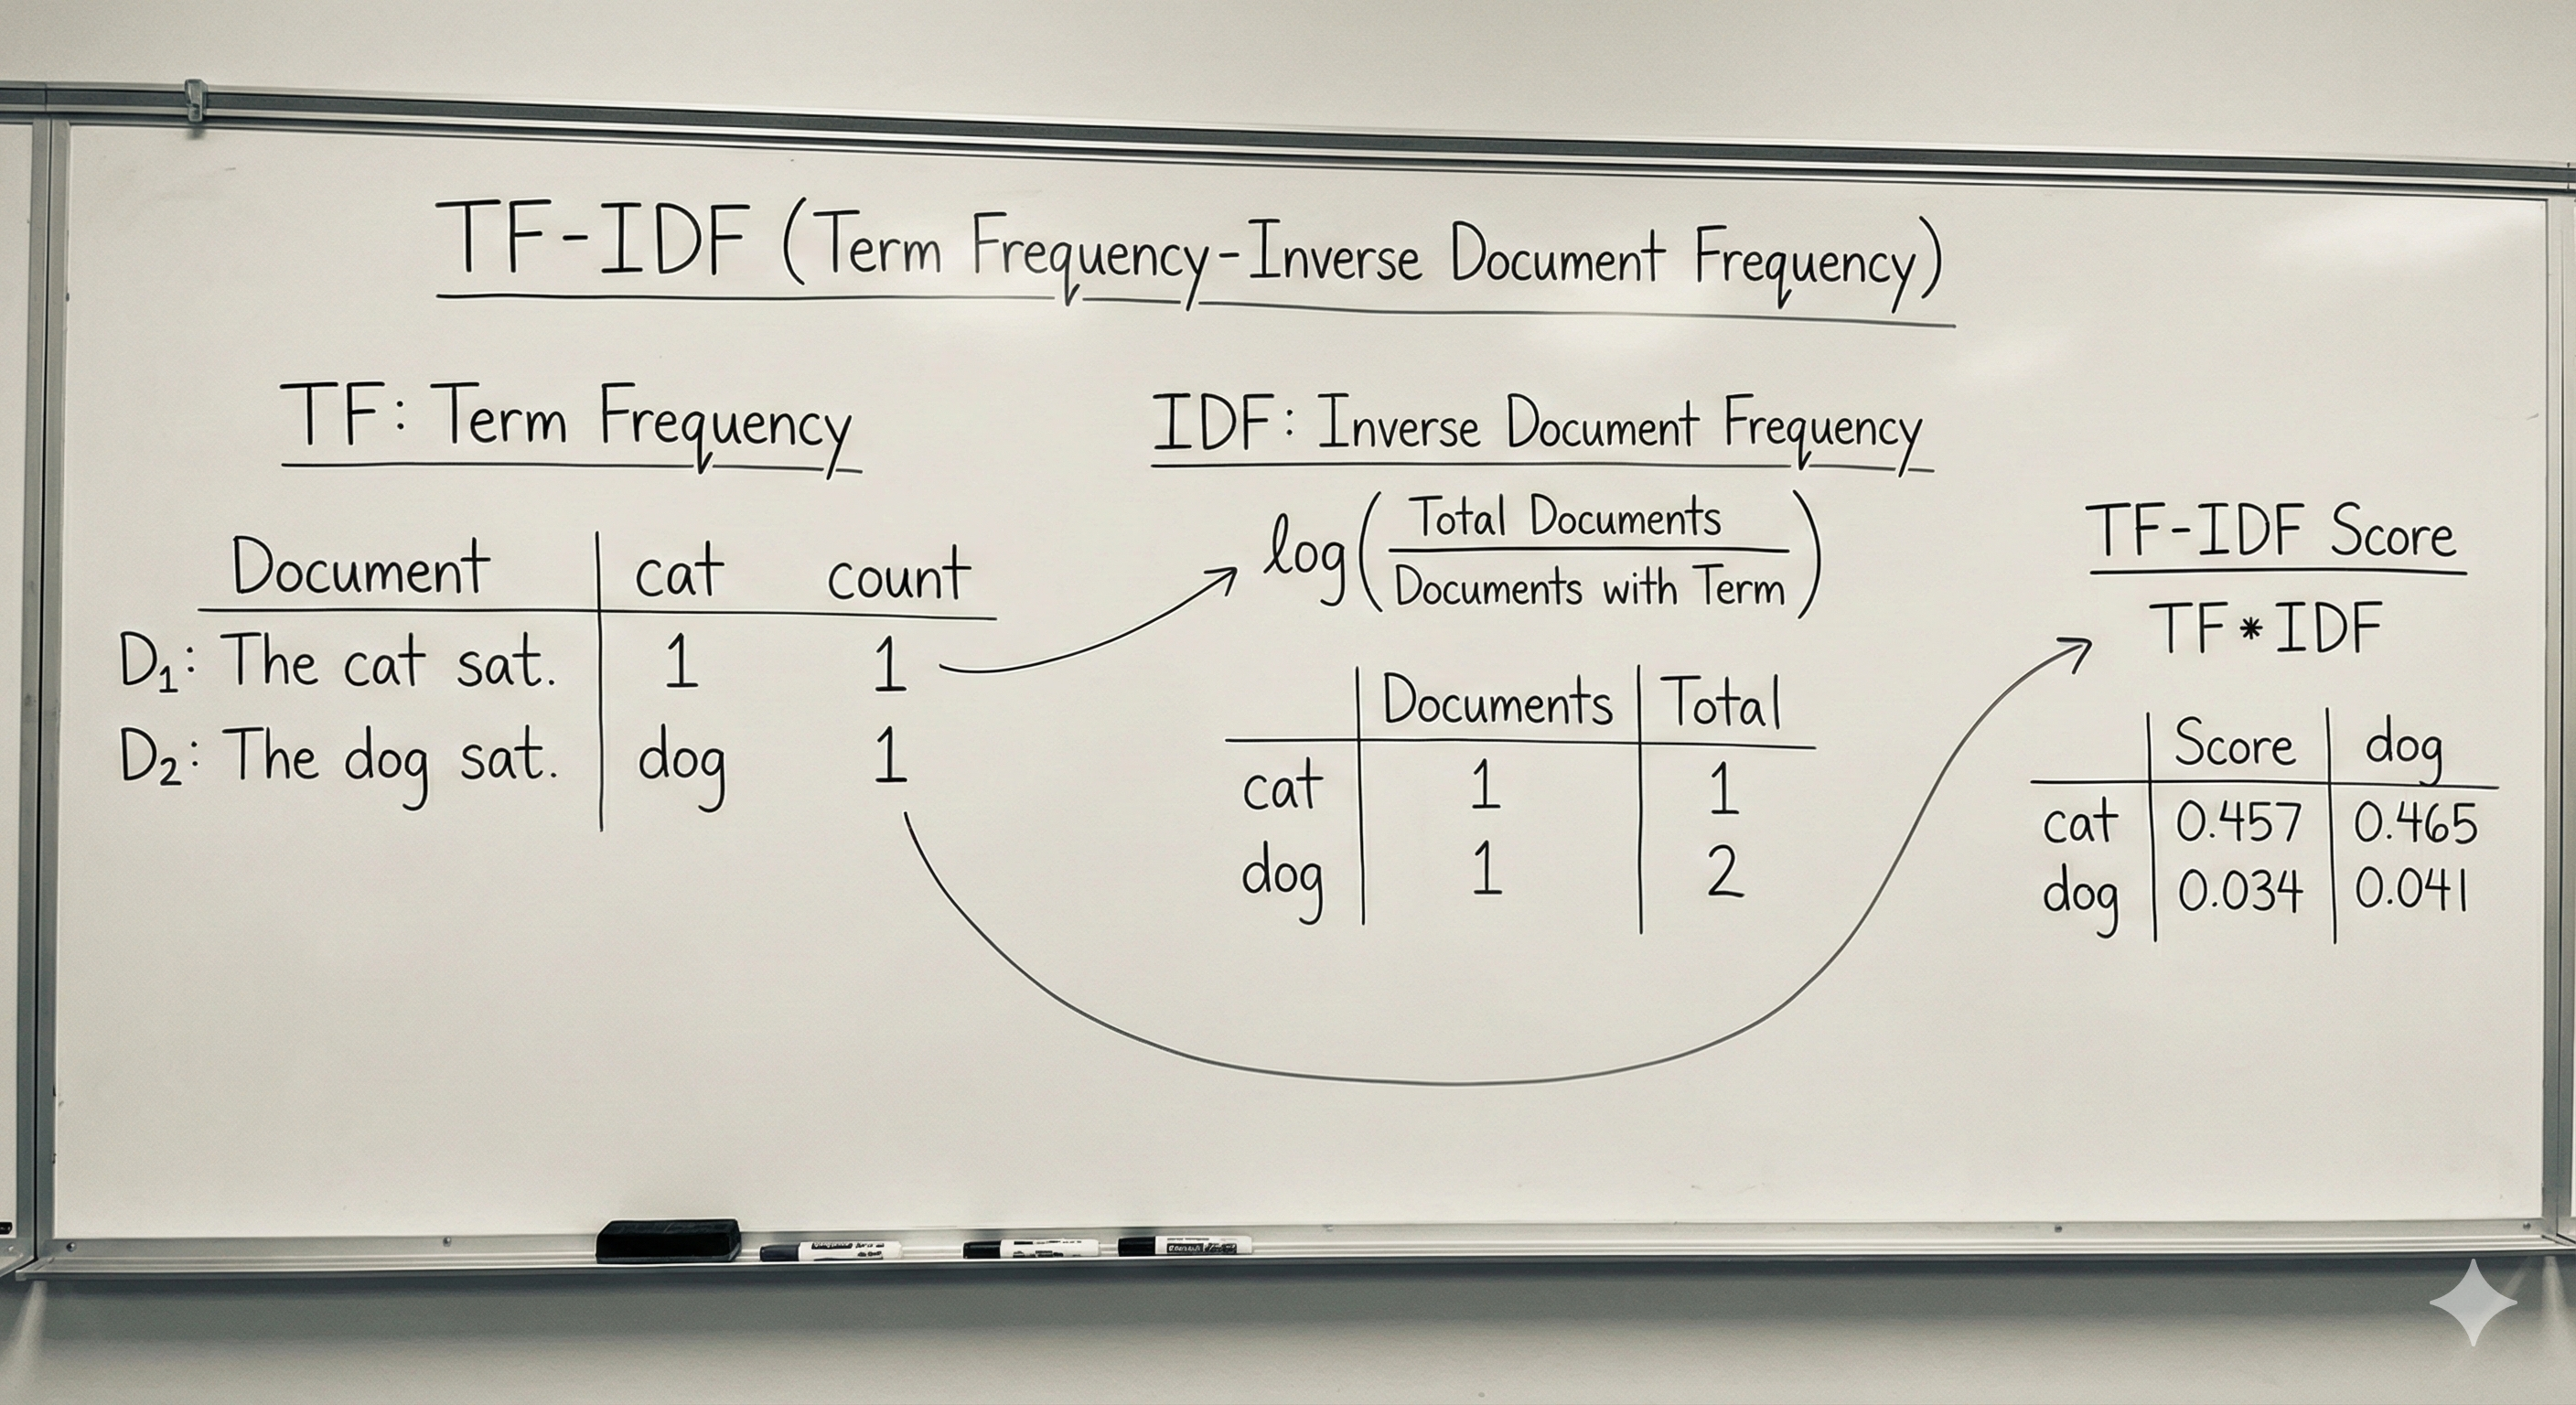 TF-IDF (Term Frequency-Inverse Document Frequency)
TF: Term Frequency
Document cat count
D₁: The cat sat. 1 1
D₂: The dog sat. dog 1
IDF: Inverse Document Frequency
log(Total Documents
Documents with Term)
Documents Total
cat 1 1
dog 1 2
TF-IDF Score
TF*IDF
Score dog
cat 0.457 0.465
dog 0.034 0.041